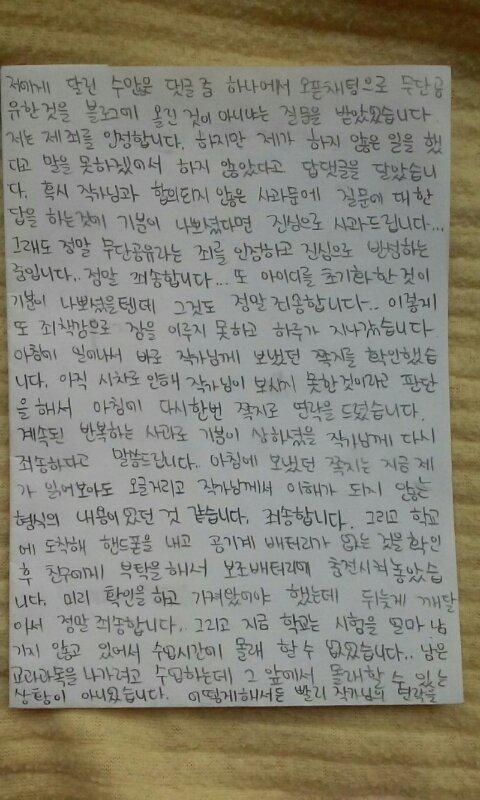 저에게 달린 수많은 댓글 중 하나에서 오픈채팅으로 무단공
유한것을 블로그에 올린 것이 아니냐는 질문을 받았었습니다.
저는 제 죄를 인정합니다. 하지만 제가 하지 않은 일을 했
다고 말을 못하겠어서 하지 않았다고 답댓글을 달았습니
다. 혹시 작가님과 합의되지 않은 사과문에 질문에 대한
답을 하는것에 기분이 나쁘셨다면 진심으로 사과드립니다...
그래도 정말 무단공유라는 죄를 인정하고 진심으로 반성하는
중입니다.. 정말 죄송합니다... 또 아이디를 초기화한 것이
기분이 나쁘셨을텐데 그것도 정말 죄송합니다.. 이렇게
또 죄책감으로 잠을 이루지 못하고 하루가 지나갔습니다
아침에 일어나서 바로 작가님께 보냈던 쪽지를 확인했습
니다. 아직 시차로 인해 작가님이 보시지 못한것이라고 판단
을 해서 아침에 다시한번 쪽지로 연락을 드렸습니다.
계속된 반복하는 사과로 기분이 상하셨을 작가님께 다시
죄송하다고 말씀드립니다.. 아침에 보냈던 쪽지는 지금 제
가 읽어보아도 오글거리고 작가님께서 이해가 되지 않는
형식의 내용이었던 것 같습니다. 죄송합니다. 그리고 학교
에 도착해 핸드폰을 내고 공기계 배터리가 없는 것을 확인
후 친구에게 부탁을 해서 보조배터리에 충전시켜놓았습
니다. 미리 확인을 하고 가져왔어야 했는데 뒤늦게 깨달
아서 정말 죄송합니다.. 그리고 지금 학교는 시험을 얼마 남
기지 않고 있어서 수업시간에 몰래 할 수 없었습니다.. 남은
교과과목을 나가려고 수업하는데 그 앞에서 몰래할 수 있는
상황이 아니었습니다. 어떻게해서든 빨리 작가님의 연락을